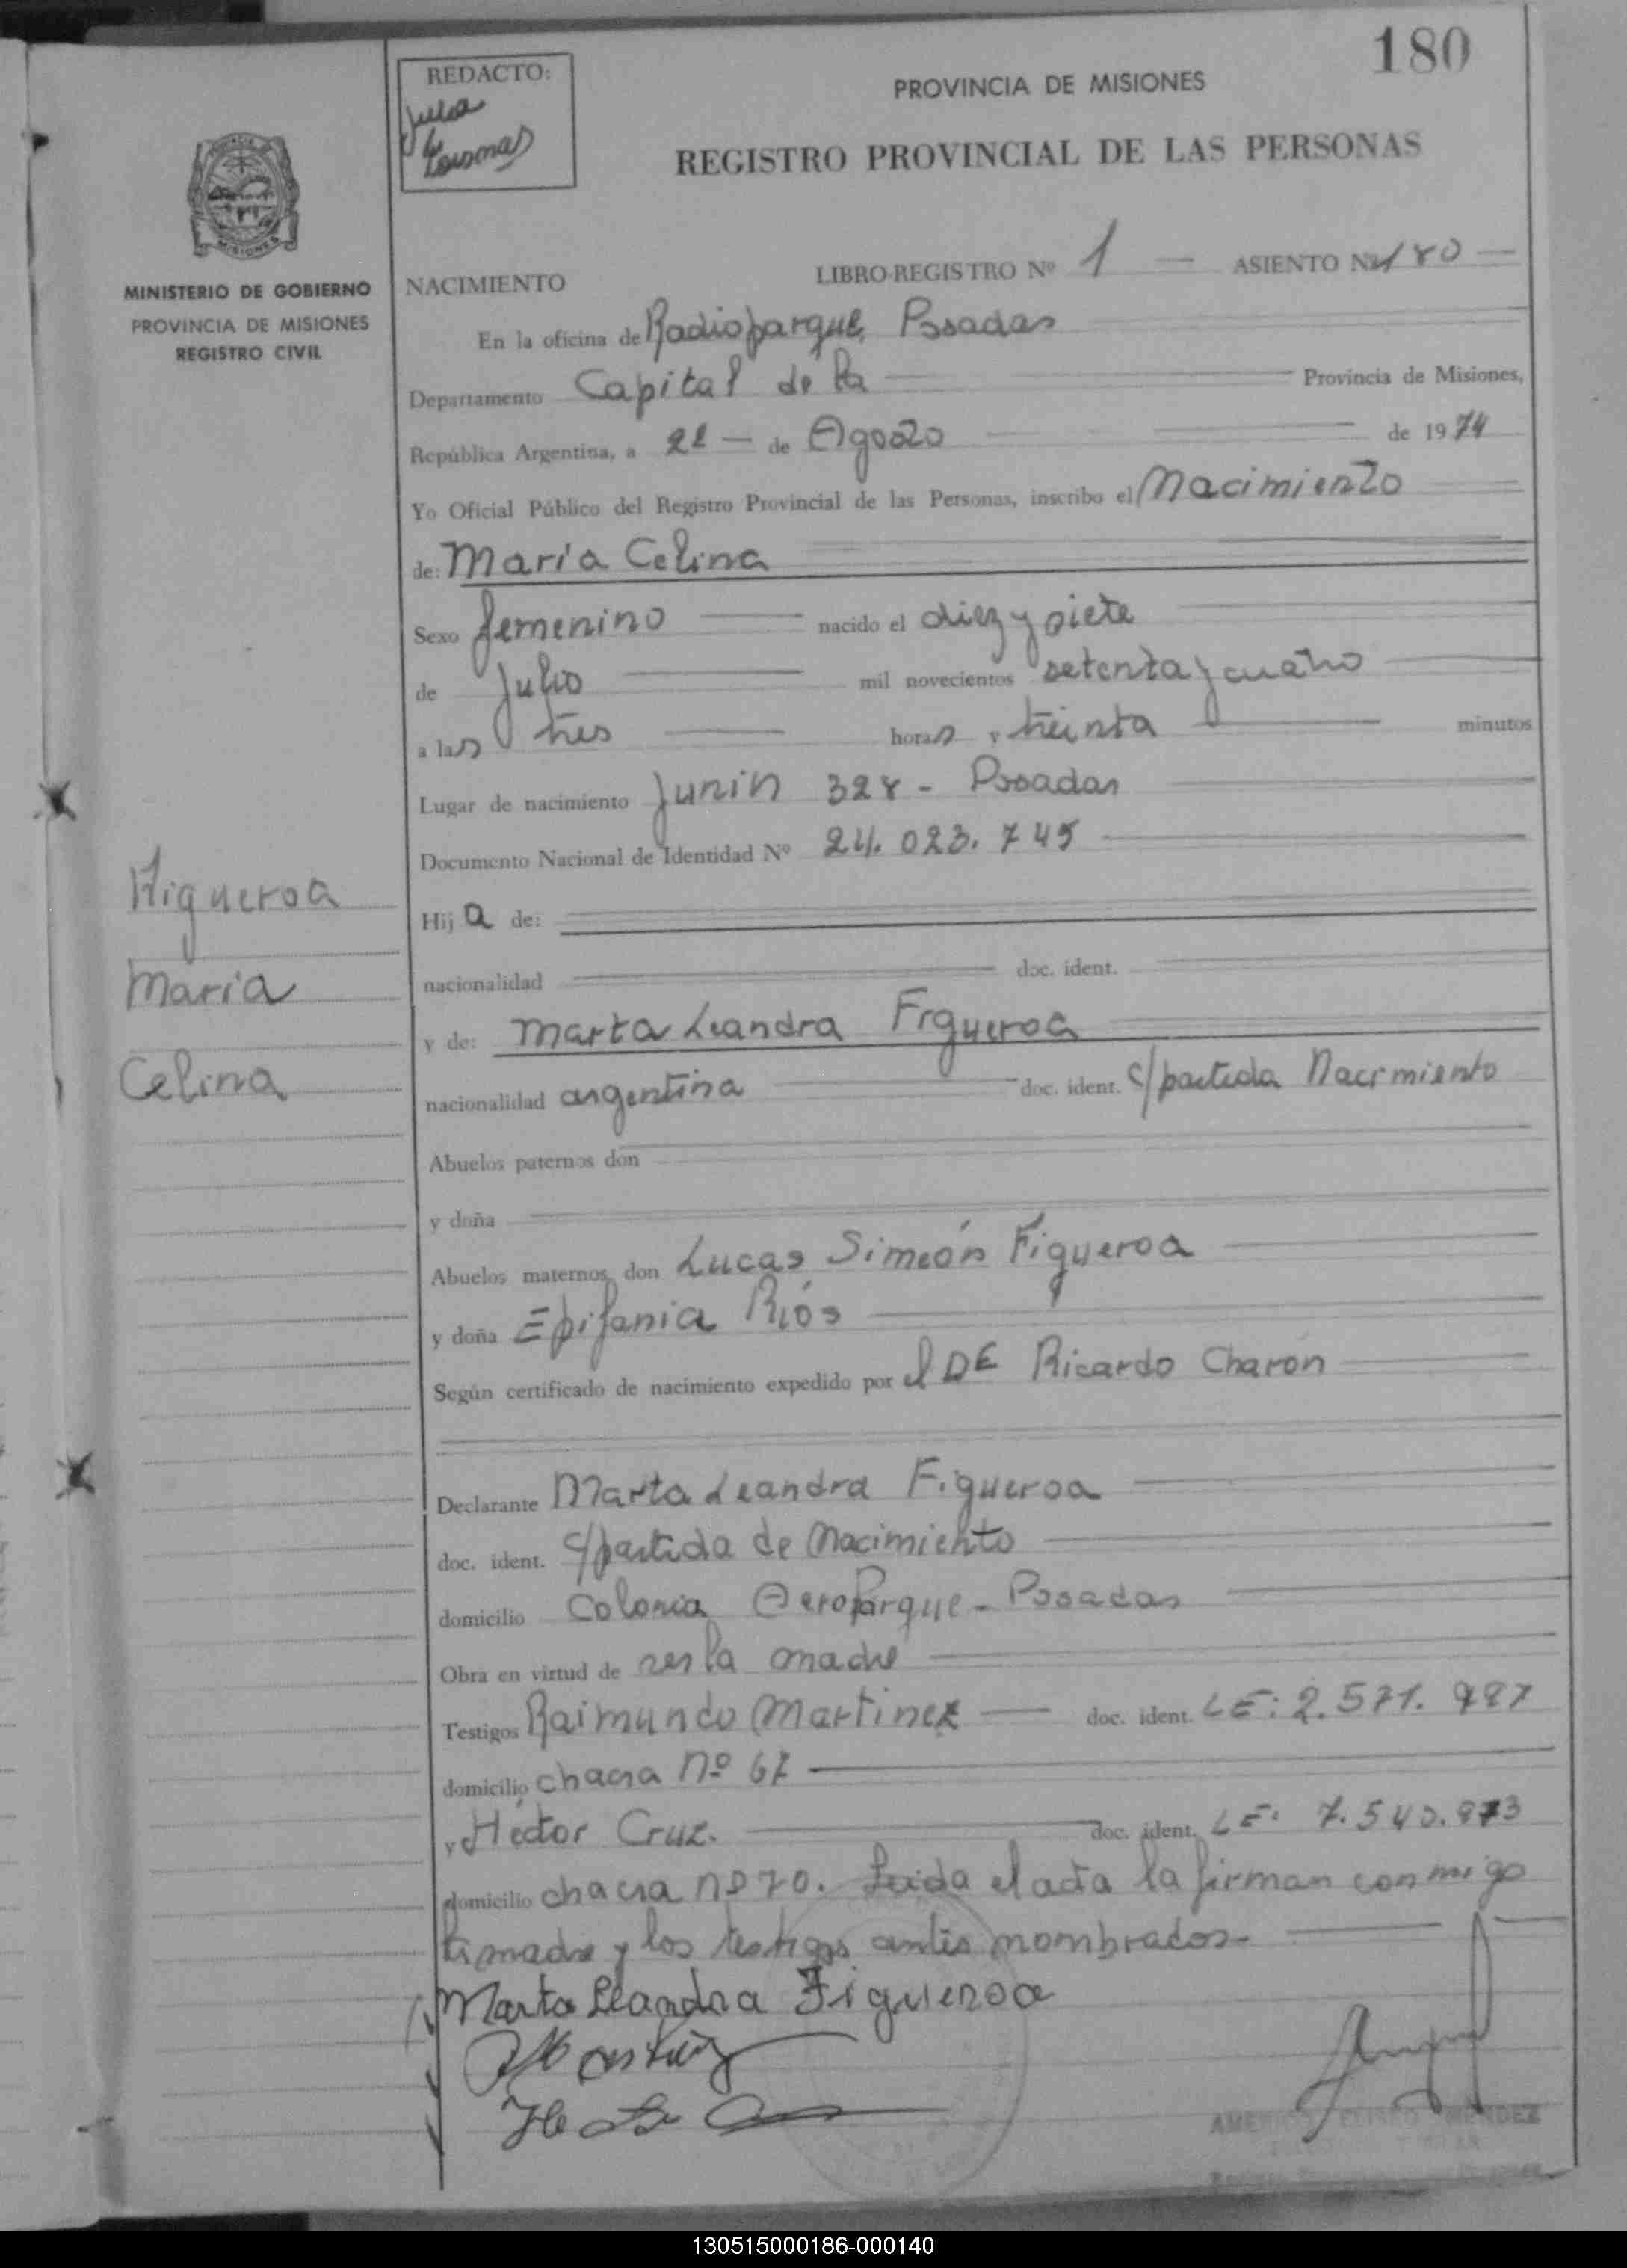 180
REDACTO:
PROVINCIA DE MISIONES
REGISTRO PROVINCIAL DE LAS PERSONAS
MISIONES
MINISTERIO DE GOBIERNO
PROVINCIA DE MISIONES
REGISTRO CIVIL
NACIMIENTO LIBRO-REGISTRO Nº 1 — ASIENTO Nº 180 —
En la oficina de Radioparque, Posadas
Departamento Capital de la Provincia de Misiones,
República Argentina, a 22 — de Agosto de 1974
Yo Oficial Público del Registro Provincial de las Personas, inscribo el Nacimiento
de: María Celina
Sexo femenino nacido el diez y siete
de Julio mil novecientos setenta y cuatro
a las tres horas y treinta minutos
Lugar de nacimiento Junin 328 - Posadas
Documento Nacional de Identidad Nº 24.023.745
Figueroa
María
Celina
Hija de:
nacionalidad doc. ident.
y de: Marta Leandra Figueroa
nacionalidad argentina doc. ident. c/partida Nacimiento
Abuelos paternos don
y doña
Abuelos maternos don Lucas Simeón Figueroa
y doña Epifania Ríos
Según certificado de nacimiento expedido por el DE Ricardo Charón
Declarante Marta Leandra Figueroa
doc. ident. c/partida de Nacimiento
domicilio Colonia Aeroparque - Posadas
Obra en virtud de ser la madre
Testigos Raimundo Martinez — doc. ident. LE: 2.571.
domicilio chacra nº 67
y Héctor Cruz. doc. ident. LE: 7.540.
domicilio chacra nº 70. Leida el acta la firman conmigo
la madre y los testigos antes nombrados.
Marta Leandra Figueroa
AMERICO ELISEO MENDEZ
130515000186-000140